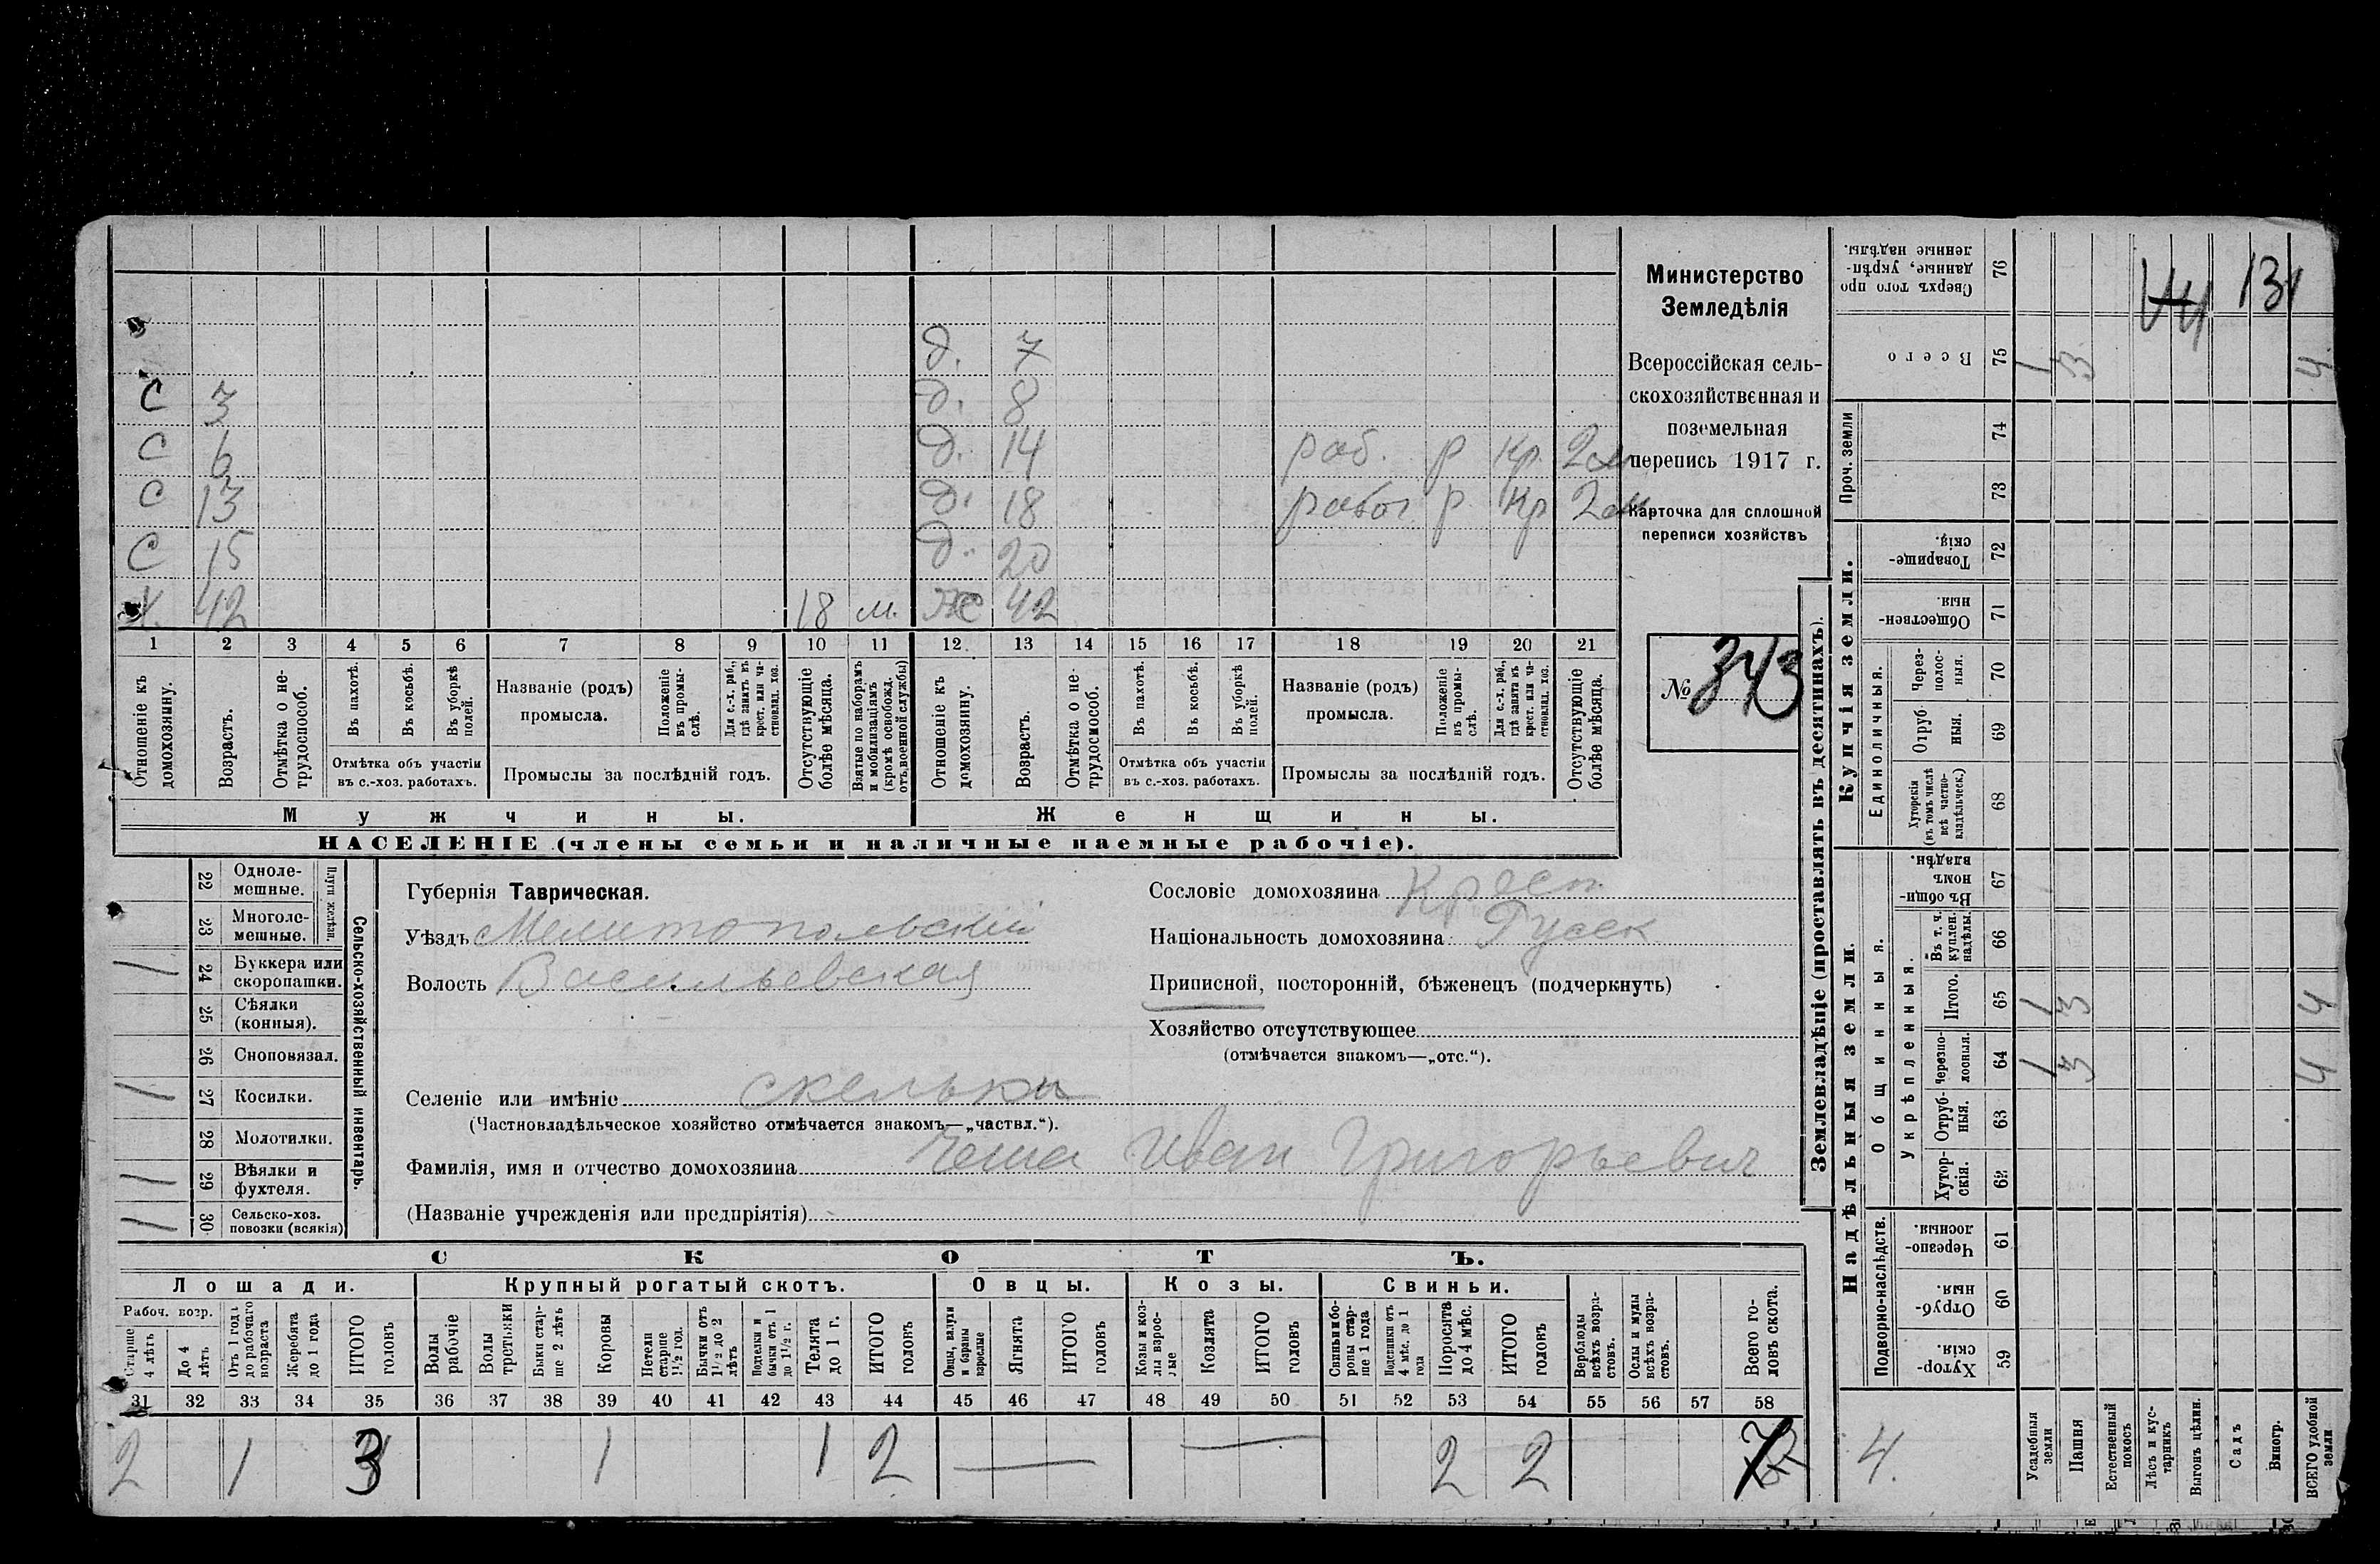 д. 7
С 3 д. 8
С 6 д. 14 раб. р Кр. 2 м
С 13 д. 18 работ. р. Кр 2 м.
С 15 д. 20
х. 42 18 м. Ж 42
1 2 3 4 5 6 7 8 9 10 11 12. 13 14 15 16 17 18 19 20 21
Отношеніе къ домохозяину.
Возрастъ.
Отмѣтка о не-трудоспособ.
Въ пахотѣ.
Въ косьбѣ.
Въ уборкѣ полей.
Отмѣтка объ участіи
въ с.-хоз. работахъ.
Названіе (родъ)
промысла.
Положеніе въ промы-слѣ.
Для с.-х. раб., гдѣ занятъ въ крест. или ча-стновлад. хоз.
Промыслы за послѣдній годъ.
Отсутствующіе болѣе мѣсяца.
Взятые по наборамъ и мобилизаціямъ (кромѣ освобожд. отъ военной службы)
Отношеніе къ домохозяину.
Возрастъ.
Отмѣтка о не-трудоспособ.
Въ пахотѣ.
Въ косьбѣ.
Въ уборкѣ полей.
Отмѣтка объ участіи
въ с.-хоз. работахъ.
Названіе (родъ)
промысла.
Положеніе въ промы-слѣ.
Для с.-х. раб., гдѣ занята въ крест. или ча-стновлад. хоз.
Промыслы за послѣдній годъ.
Отсутствующіе болѣе мѣсяца.
Мужчины. Женщины.
НАСЕЛЕНІЕ (члены семьи и наличные наемные рабочіе).
Министерство
Земледѣлія
Всероссійская сель-
скохозяйственная и
поземельная
перепись 1917 г.
Карточка для сплошной
переписи хозяйствъ
№ 343
22 Одноле-мешные.
23 Многоле-мешные.
Плуги желѣзн.
1 24 Буккера или скоропашки.
25 Сѣялки (конныя).
26 Сноповязал.
1 27 Косилки.
28 Молотилки.
1 29 Вѣялки и фухтеля.
1 30 Сельско-хоз. повозки (всякія)
Сельско-хозяйственный инвентарь.
Губернія Таврическая.
Уѣздъ Мелитопольский
Волость Васильевская
Сословіе домохозяина Крест.
Національность домохозяина Русск
Приписной, посторонній, бѣженецъ (подчеркнуть)
Хозяйство отсутствующее
(отмѣчается знакомъ—„отс.“).
Селеніе или имѣніе Скельки
(Частновладѣльческое хозяйство отмѣчается знакомъ—„частвл.“).
Фамилія, имя и отчество домохозяина Иван Григорьевич
(Названіе учрежденія или предпріятія)
СКОТЪ.
Лошади. Крупный рогатый скотъ. Овцы. Козы. Свиньи.
Рабоч. возр.
Старше 4 лѣтъ
До 4 лѣтъ
Отъ 1 года до рабочаго возраста
Жеребята до 1 года
ИТОГО головъ
Волы рабочіе
Волы третьяки
Быки стар-ше 2 лѣтъ
Коровы
Нетели старше 1½ год.
Бычки отъ 1½ до 2 лѣтъ
Подтелки и бычки отъ 1 до 1½ г.
Телята до 1 г.
ИТОГО головъ
Овцы, валухи и бараны взрослые
Ягнята
ИТОГО головъ
Козы и коз-лы взрос-лые
Козлята
ИТОГО головъ
Свиньи и бо-ровы стар-ше 1 года
Подсвинки отъ 4 мѣс. до 1 года
Поросята до 4 мѣс.
ИТОГО головъ
Верблюды всѣхъ возра-стовъ.
Ослы и мулы всѣхъ возра-стовъ.
Всего го-ловъ скота.
31 32 33 34 35 36 37 38 39 40 41 42 43 44 45 46 47 48 49 50 51 52 53 54 55 56 57 58
2 1 3 1 1 2 — — 2 2 7
Землевладѣніе (проставлять въ десятинахъ).
Надѣльныя земли. Купчія земли.
Подворно-наслѣдств.
Общинныя.
Укрѣпленныя.
Единоличныя.
Проч. земли
Хутор-скія. 59
Отруб-ныя. 60
Черезпо-лосныя. 61
Хутор-скія. 62
Отруб-ныя. 63
Черезпо-лосныя. 64 1 3 4
Итого. 65 1 3 4
Въ т. ч. куплен. надѣлы. 66
Въ общи-номъ владѣн. 67
Хуторскія (въ томъ числѣ всѣ частно-владѣльческ.) 68
Отруб-ныя. 69
Через-полос-ныя. 70
Обществен-ныя. 71
Товарище-скія. 72
73
74
Всего 75 1 3 4
Сверхъ того про-данные, укрѣп-ленные надѣлы. 76
131
4.
Усадебныя земли
Пашня
Естественный покосъ
Лѣсъ и кус-тарникъ
Выгонъ цѣлин.
Садъ
Виногр.
ВСЕГО удобной земли